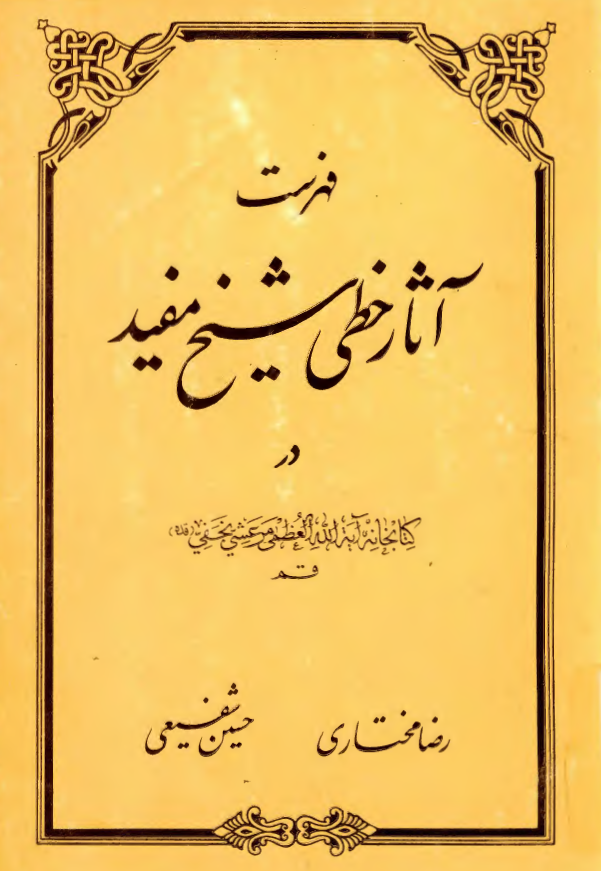 فهرست
آثار خطی شیخ مفید
در
کتابخانه آیة الله العظمی مرعشی نجفی (قده)
قم
رضا مختاری حسین شفیعی